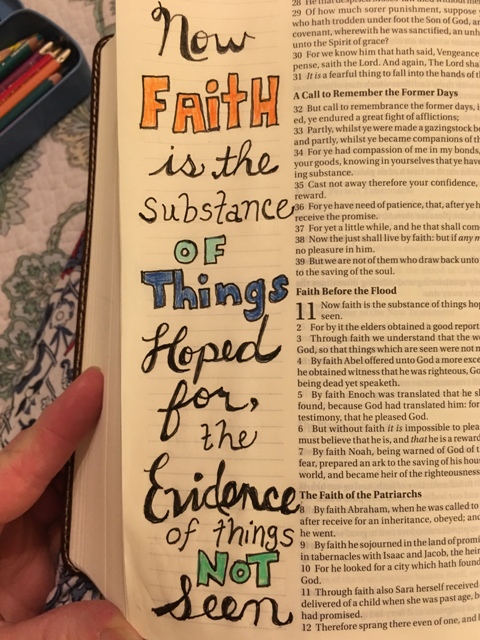 Now
FAITH
is the
substance
OF
Things
Hoped
for,
the
Evidence
of things
NOT
Seen
29 Of how much sorer punishment, suppose
who hath trodden under foot the Son of God, a
covenant, wherewith he was sanctified, an unh
unto the Spirit of grace?
30 For we know him that hath said, Vengeance
pense, saith the Lord. And again, The Lord sha
31 It is a fearful thing to fall into the hands of t
A Call to Remember the Former Days
32 But call to remembrance the former days, i
ed, ye endured a great fight of afflictions;
33 Partly, whilst ye were made a gazingstock b
and partly, whilst ye became companions of th
34 For ye had compassion of me in my bonds,
your goods, knowing in yourselves that ye hav
ing substance.
35 Cast not away therefore your confidence,
reward.
36 For ye have need of patience, that, after ye h
receive the promise.
37 For yet a little while, and he that shall com
38 Now the just shall live by faith: but if any m
no pleasure in him.
39 But we are not of them who draw back unto
to the saving of the soul.
Faith Before the Flood
11 Now faith is the substance of things hop
seen.
2 For by it the elders obtained a good report
3 Through faith we understand that the wo
God, so that things which are seen were not m
4 By faith Abel offered unto God a more exce
he obtained witness that he was righteous, Go
being dead yet speaketh.
5 By faith Enoch was translated that he sh
found, because God had translated him: for
testimony, that he pleased God.
6 But without faith it is impossible to plea
must believe that he is, and that he is a reward
7 By faith Noah, being warned of God of th
fear, prepared an ark to the saving of his hou
world, and became heir of the righteousness
The Faith of the Patriarchs
8 By faith Abraham, when he was called to
after receive for an inheritance, obeyed; and
he went.
9 By faith he sojourned in the land of promi
in tabernacles with Isaac and Jacob, the heir
10 For he looked for a city which hath found
God.
11 Through faith also Sara herself received
delivered of a child when she was past age, b
had promised.
12 Therefore sprang there even of one, and h